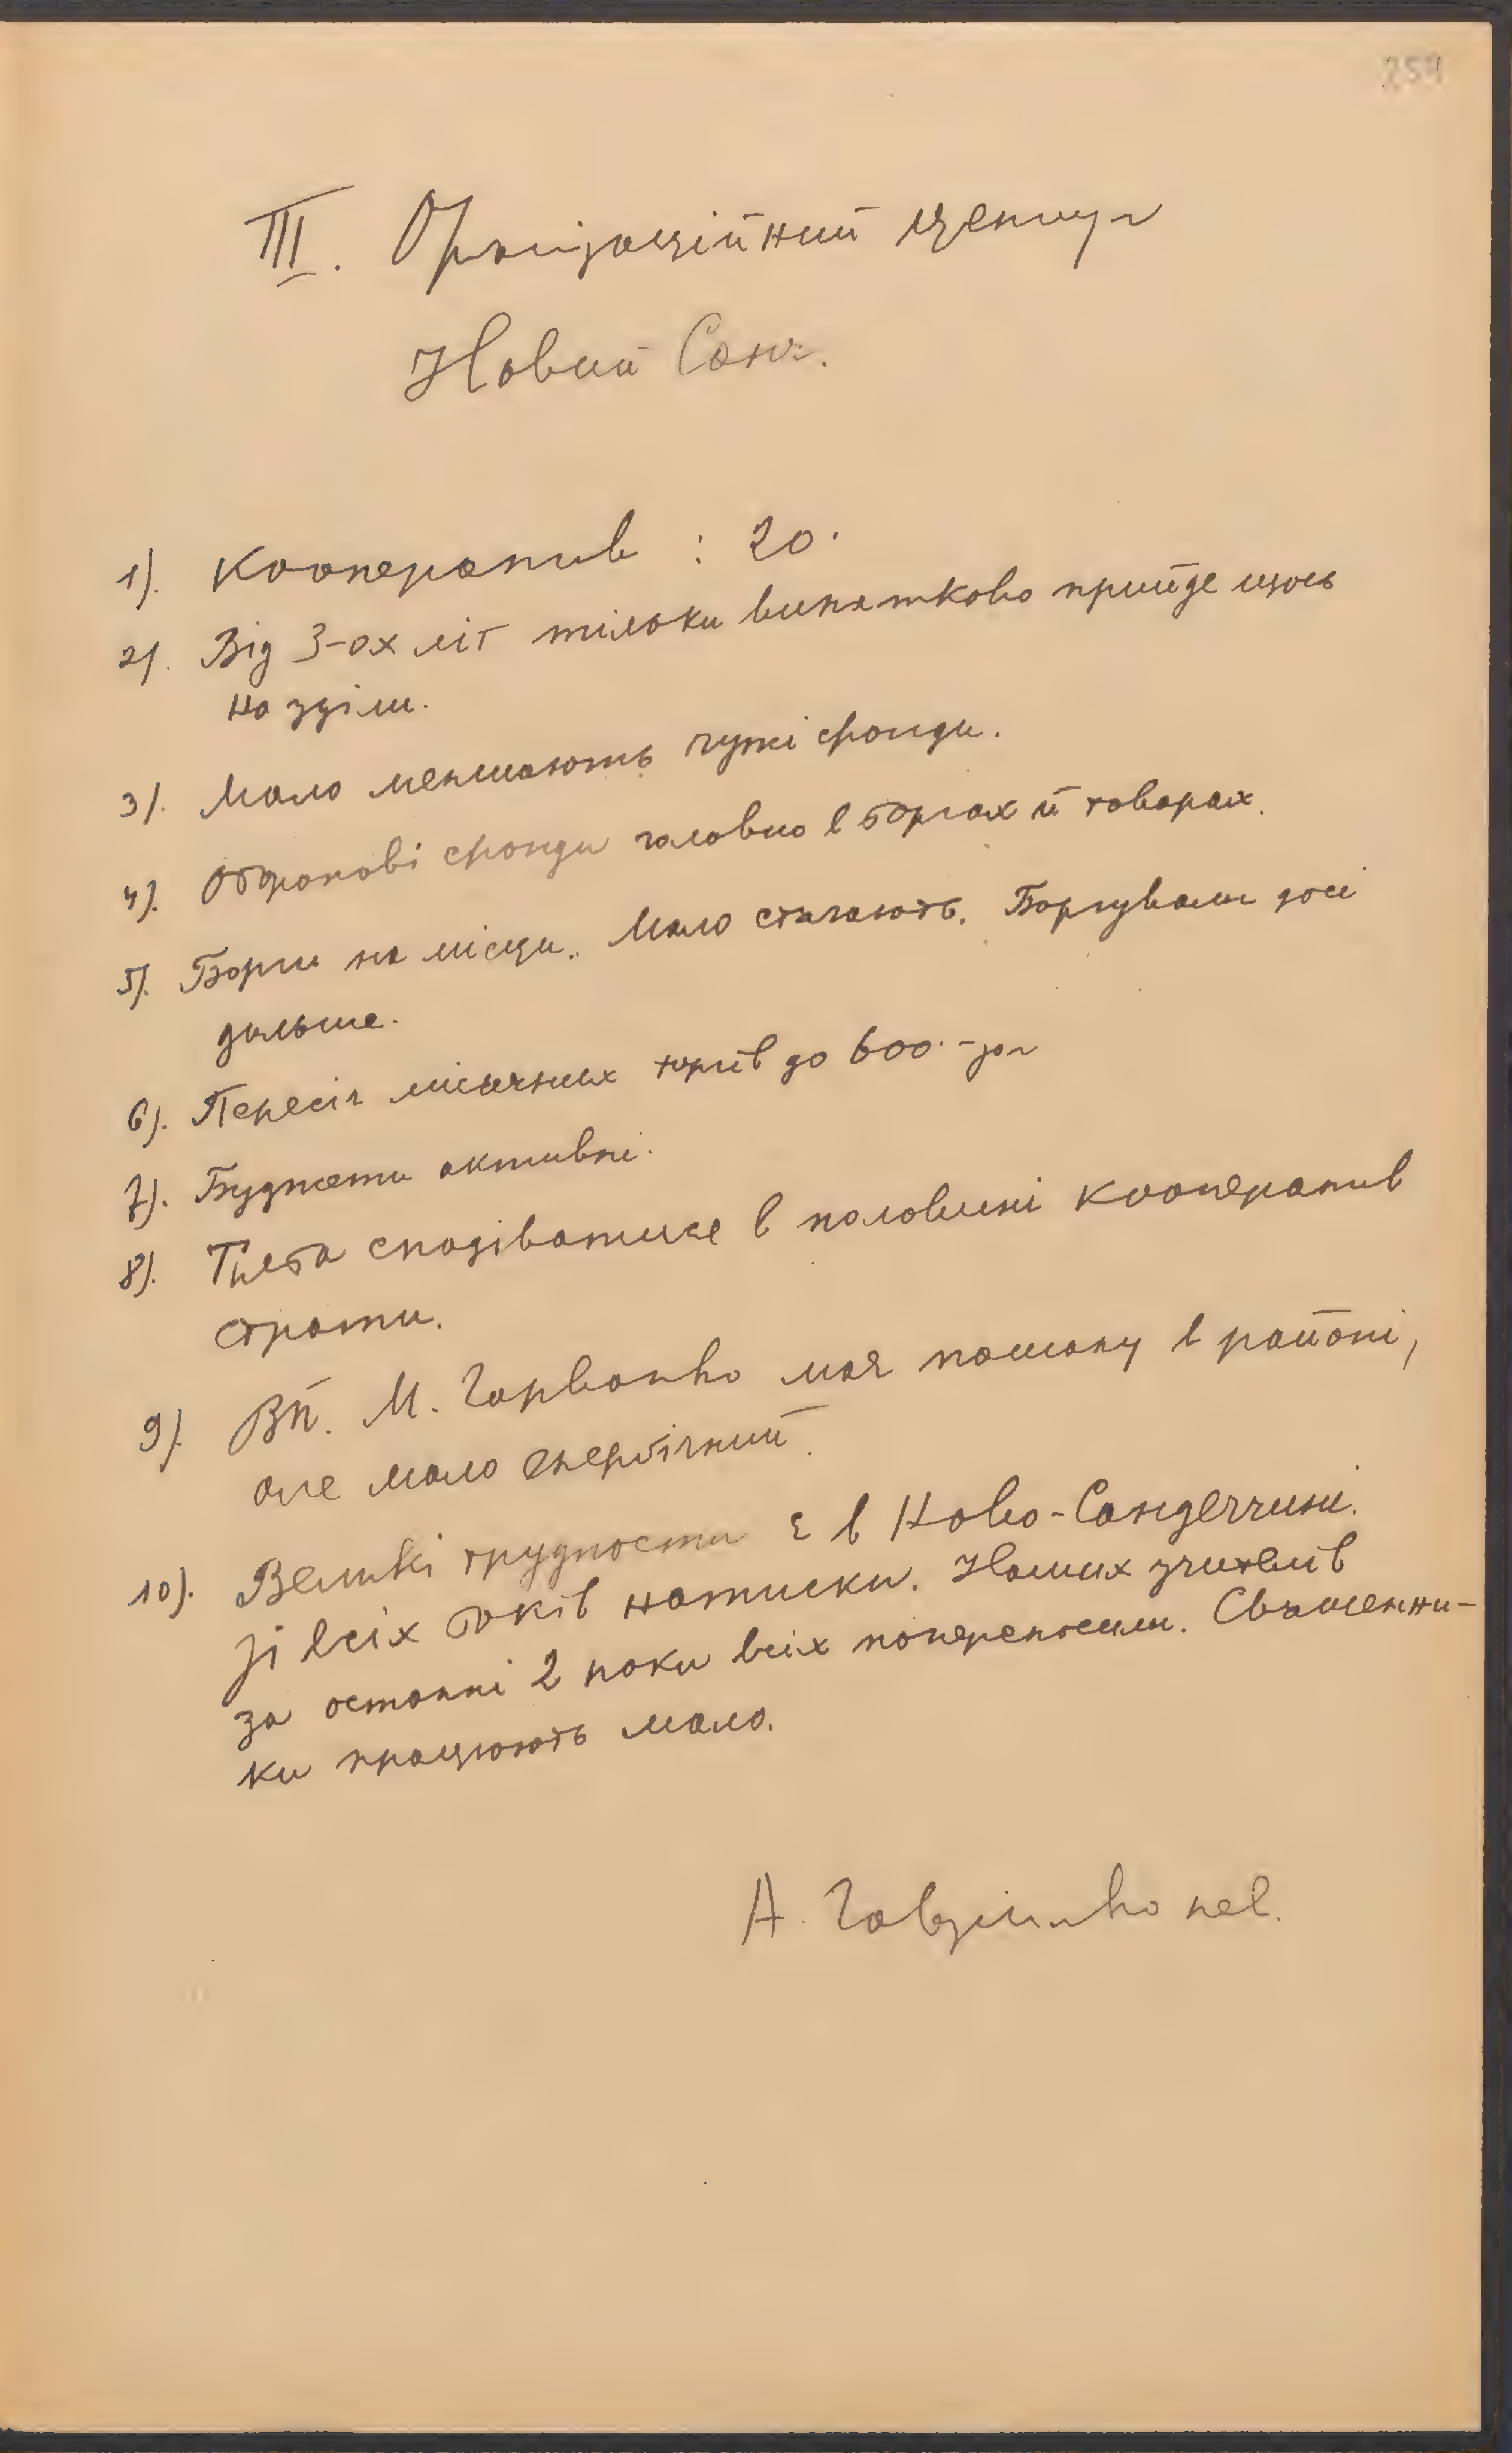 259
III. Орґанізаційний центр
Новий Санч.
1). Кооператив : 20.
2). Від 3-ох літ тільки винятково прийде щось
на уділи.
3). Мало меншають чужі фонди.
4). Оборотові фонди головно в боргах й товарах.
5). Борги на місци. Мало стягають. Боргували досі
дальше.
6). Пересіч місячних торгів до 600.- зол
7). Буджети активні.
8). Треба сподіватися в половині кооператив
страти.
9). Вп. М. має пошану в районі,
але мало енергічний.
10). Великі трудности є в Ново-Сандеччині.
Зі всіх боків натиски. Наших учителів
за останні 2 роки всіх поперенесили. Священни-
ки працюють мало.
А.